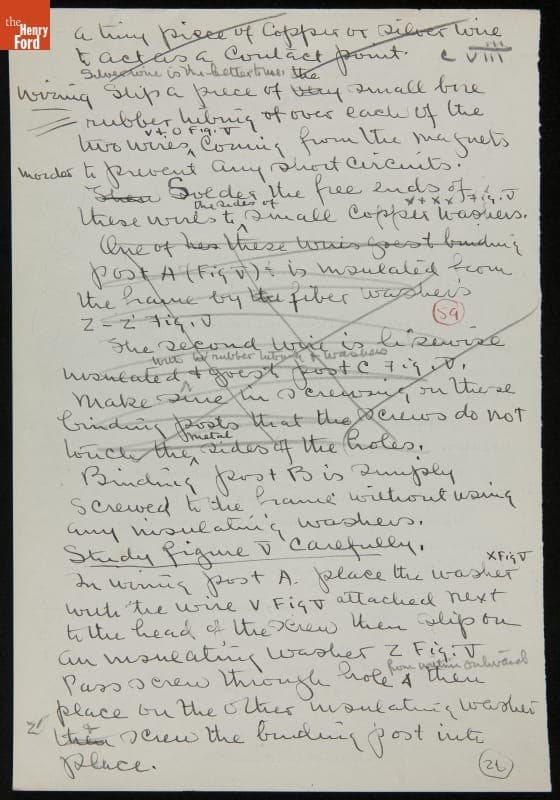 the
Henry
Ford
a tiny piece of Copper or silver wire
to act as a Contact point.
C VIII
Silver wire is the better the
Wiring Slip a piece of very small bore
rubber tubing of over each of the
V + O Fig. V
two wires Coming from the magnets
to prevent any short circuits.
Then Solder the free ends of x + x x) Fig. V
the sides of
these wires to small Copper washers.
One of has these wires goest binding
post A (Fig V) & is insulated from
the frame by the fiber washers
Z - Z' Fig. V
59
The second wire is likewise
with rubber & washers
insulated & goest post C Fig. V.
Make sure in screwing on these
binding posts that the screws do not
metal
touch the sides of the holes.
Binding post B is simply
screwed to the frame without using
any insulating washers.
Study figure V Carefully.
X Fig V
In wiring post A. place the washer
with the wire V Fig V attached next
to the head of the screw then slip on
an insulating washer Z Fig. V
from within outward
Pass screw through hole & then
place on the other insulating washer
Z' then & screw the binding post into
place.
26